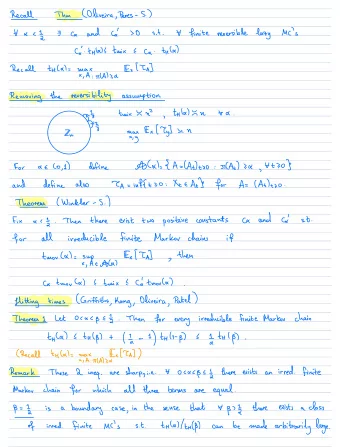 Recall Thm (Oliveira, Peres - S)
∀ α < 1/2 ∃ cα and cα' > 0 s.t. ∀ finite reversible lazy MC's
cα' tH(α) ≤ tmix ≤ cα tH(α)
Recall tH(α) = max x, A: π(A) ≥ α Ex[τA]
Removing the reversibility assumption
tmix ≍ n², tH(α) ≍ n ∀ α
Zn
max x,y Ex[τy] ≍ n
For α ∈ (0,1) define A(α) = {A = (At)t≥0 : π(At) ≥ α, ∀ t ≥ 0}
and define also τA = inf{t ≥ 0 : Xt ∈ At} for A = (At)t≥0.
Theorem (Winkler - S.)
Fix α < 1/2. Then there exist two positive constants cα and cα' s.t.
for all irreducible finite Markov chains if
tmov(α) = sup x, A ∈ A(α) Ex[τA], then
cα tmov(α) ≤ tmix ≤ cα' tmov(α).
Hitting times (Griffiths, Kang, Oliveira, Patel)
Theorem 1 Let 0 < α < β ≤ 1/2. Then for every irreducible finite Markov chain
tH(α) ≤ tH(β) + (1/α - 1) tH(1-β) ≤ 1/α tH(β).
(Recall tH(α) = max x, A: π(A) ≥ α Ex[τA])
Remark These 2 ineq. are sharp, i.e. ∀ 0 < α < β ≤ 1/2 there exists an irred. finite
Markov chain for which all three terms are equal.
β = 1/2 is a boundary case, in the sense that ∀ β > 1/2 there exists a class
of irred finite MC's s.t. tH(α)/tH(β) can be made arbitrarily large.